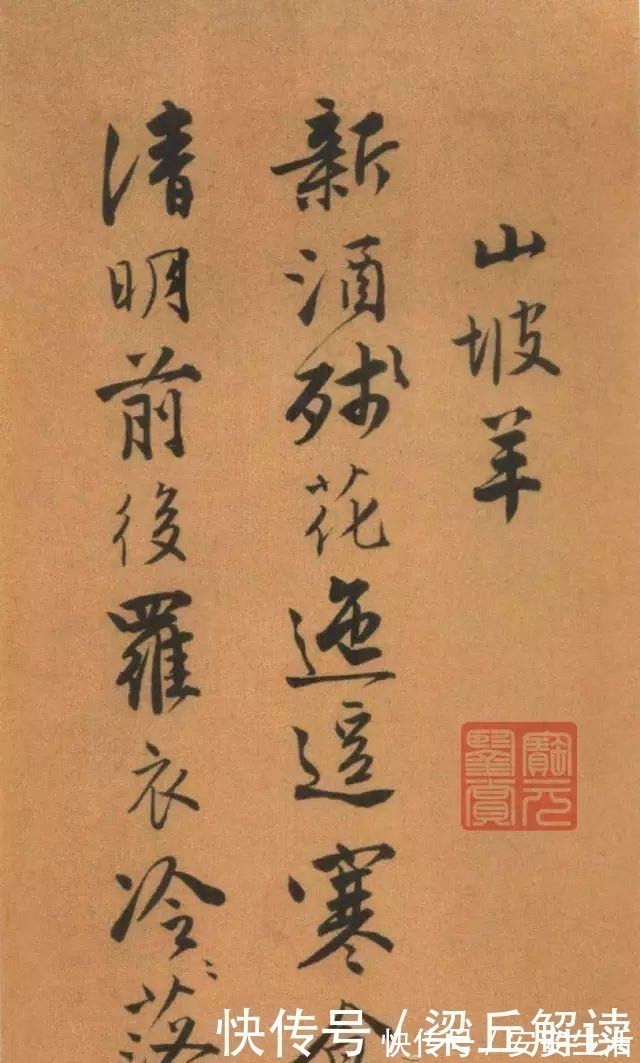 山坡羊
新酒殘花迤逗寒食
清明前後羅衣冷落
快传号 / 梁丘解读